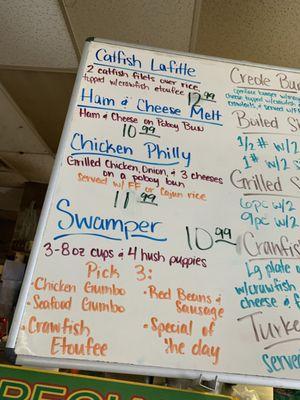 Catfish Lafitte
2 catfish filets over rice
topped w/crawfish etoufee
12.99
Ham & Cheese Melt
Ham & Cheese on Poboy Bun
10.99
Chicken Philly
Grilled Chicken, Onion, & 3 cheeses
on a poboy bun
served w/ FF or Cajun rice
11.99
Swamper
10.99
3-8oz cups & 4 hush puppies
Pick 3:
• Chicken Gumbo
• Seafood Gumbo
• Crawfish
Etoufee
• Red Beans &
Sausage
• Special of
the day
Creole Bu
cheese topped w/crawfish
Boiled S
1/2# w/2
1# w/2
Grilled S
6pc w/2
9pc w/2
Crawfish
Lg plate
w/crawfish
cheese & f
Turke
Serve